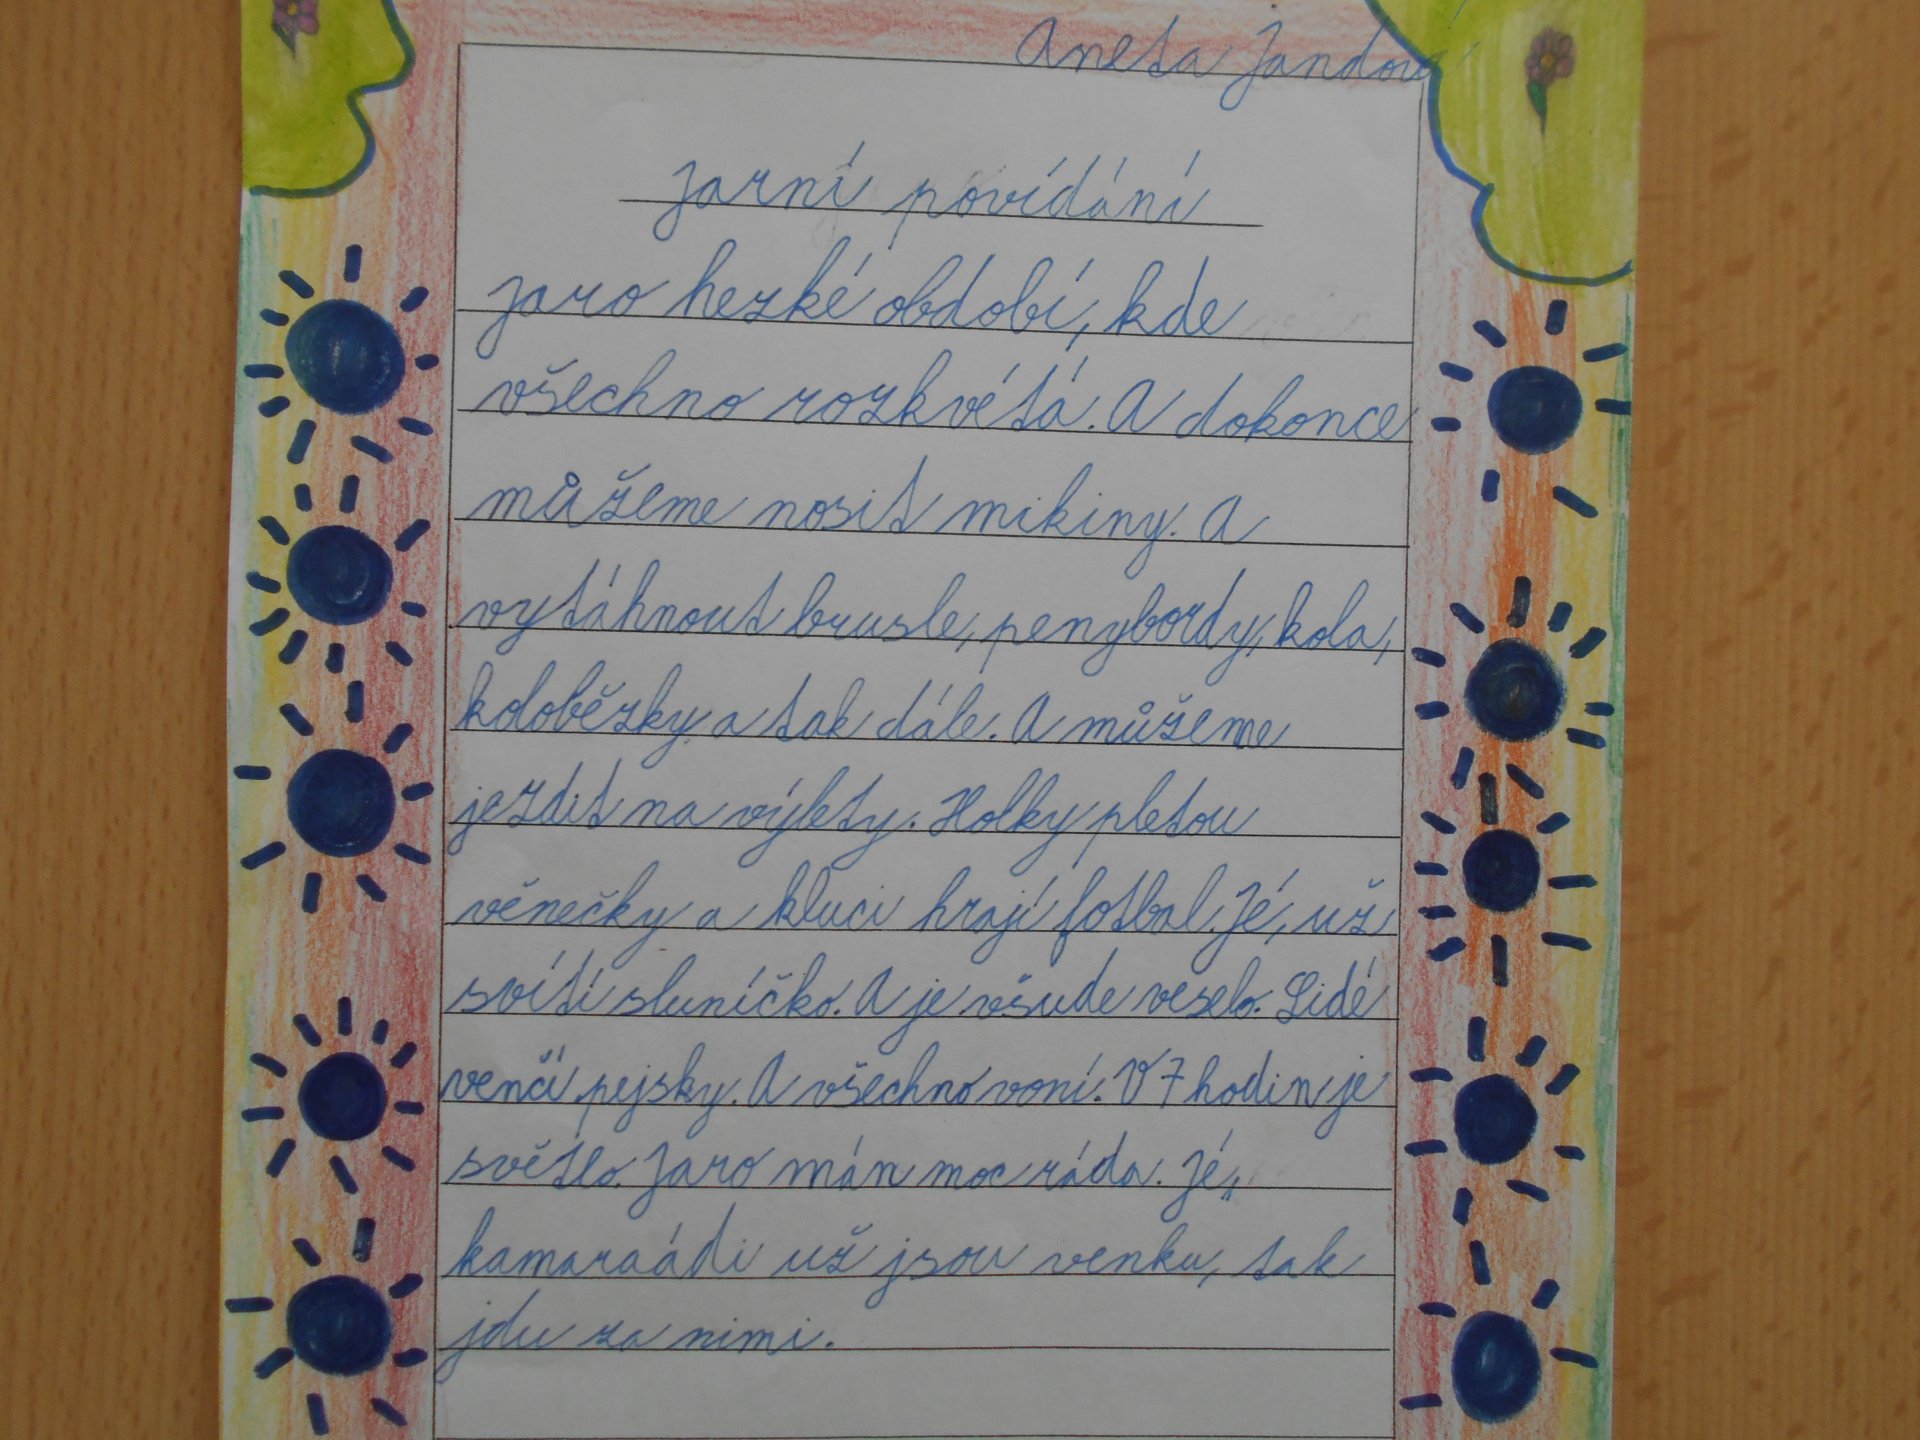 Aneta Jandov
Jarní povídání
Jaro hezké období, kde
všechno rozkvétá. A dokonce
můžeme nosit mikiny. A
vytáhnout brusle, penybordy, kola,
koloběžky a tak dále. A můžeme
jezdit na výlety. Holky pletou
věnečky a kluci hrají fotbal. Jé, už
svítí sluníčko. A je všude veselo. Lidé
venčí pejsky. A všechno voní. V 7 hodin je
světlo. Jaro mán moc ráda. Jé,
kamaraádi už jsou venku, tak
jdu za nimi.